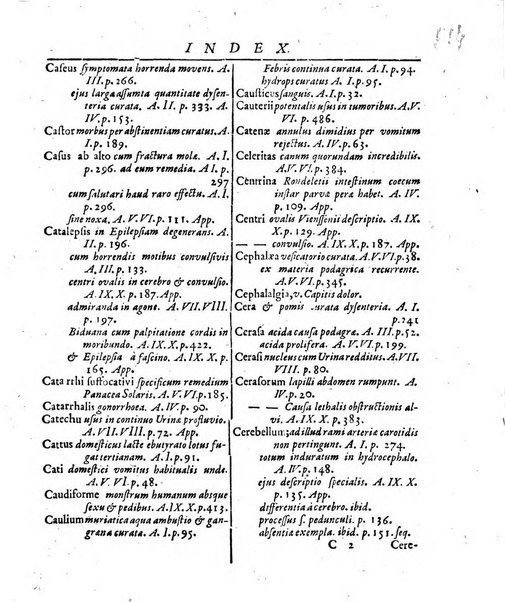 INDEX
Caseus symptomata horrenda movens. A.
III. p. 266.
ejus larga assumta quantitate dysen-
teria curata. A. II. p. 333. A.
IV. p. 153.
Castor morbus per abstinentiam curatus. A.
I. p. 189.
Casus ab alto cum fractura molæ. A. I.
p. 296. ad eum remedia. A. I. p.
297
cum salutari haud raro effectu. A. I.
p. 296.
sine noxa. A. V. VI. p. 111. App.
Catalepsis in Epilepsiam degenerans. A.
II. p. 196.
cum horrendis motibus convulsivis
A. I. p. 133.
centri ovalis in cerebro & convulsio.
A. IX. X. p. 187. App.
admiranda in agone. A. VII. VIII.
p. 197.
Biduana cum palpitatione cordis in
moribundo. A. IX. X. p. 422.
& Epilepsia à fascino. A. IX. X. p.
165. App.
Catarrhi suffocativi specificum remedium
Panacea Solaris. A. V. VI. p. 185.
Catarrhalis gonorrhœa. A. IV. p. 90.
Catechu usus in continuo Urinæ profluvio.
A. VII. VIII. p. 72. App.
Cattus domesticus lacte ebutyrato lotus fu-
gat terianam. A. I. p. 91.
Cati domestici vomitus habitualis unde.
A. V. VI. p. 48.
Caudiforme monstrum humanum absque
sexu & pedibus. A. IX. X. p. 413.
Caulium muriatica aqua ambustio & gan-
grana curata. A. I. p. 95.
Febris continua curata. A. I. p. 94.
hydrops curatus A. I. p. 95.
Causticus sanguis. A. I. p. 32.
Cauterii potentialis usus in tumoribus. A. V.
VI. p. 486.
Catenæ annulus dimidius per vomitum
rejectus. A. IV. p. 63.
Celeritas canum quorundam incredibilis.
A. V. VI. p. 54.
Centrina Rondeletii intestinum coecum
instar parvæ peræ habet. A. IV.
p. 109. App.
Centri ovalis Vienssenii descriptio. A. IX.
X. p. 129. App.
— — convulsio. A. IX. X. p. 187. App.
Cephalæa vesicatorio curata. A. V. VI. p. 38.
ex materia podagrica recurrente.
A. V. VI. p. 345.
Cephalalgia, v. Capitis dolor.
Cera & pomis curata dysenteria. A. I.
p. 241
Cerasa acida causa podagræ. A. III. p. 52.
acida prolifera. A. V. VI. p. 199.
Cerasi nucleus cum Urina redditus. A. VII.
VIII. p. 80.
Cerasorum lapilli abdomen rumpunt. A.
IV. p. 20.
— — Causa lethalis obstructionis al-
vi. A. IX. X. p. 383.
Cerebellum; ad illud rami arteriæ carotidis
non pertingunt. A. I. p. 274.
totum induratum in hydrocephalo.
A. IV. p. 148.
ejus descriptio specialis. A. IX. X
p. 135. App.
differentia à cerebro. ibid.
processus s. pedunculi. p. 136.
absentiæ exempla. ibid. p. 151. seq.
C 2 Cere-